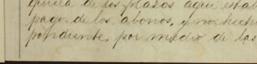 de los plazos aquí estab
pago de los abonos, y no hecho
pondiente por medio de las